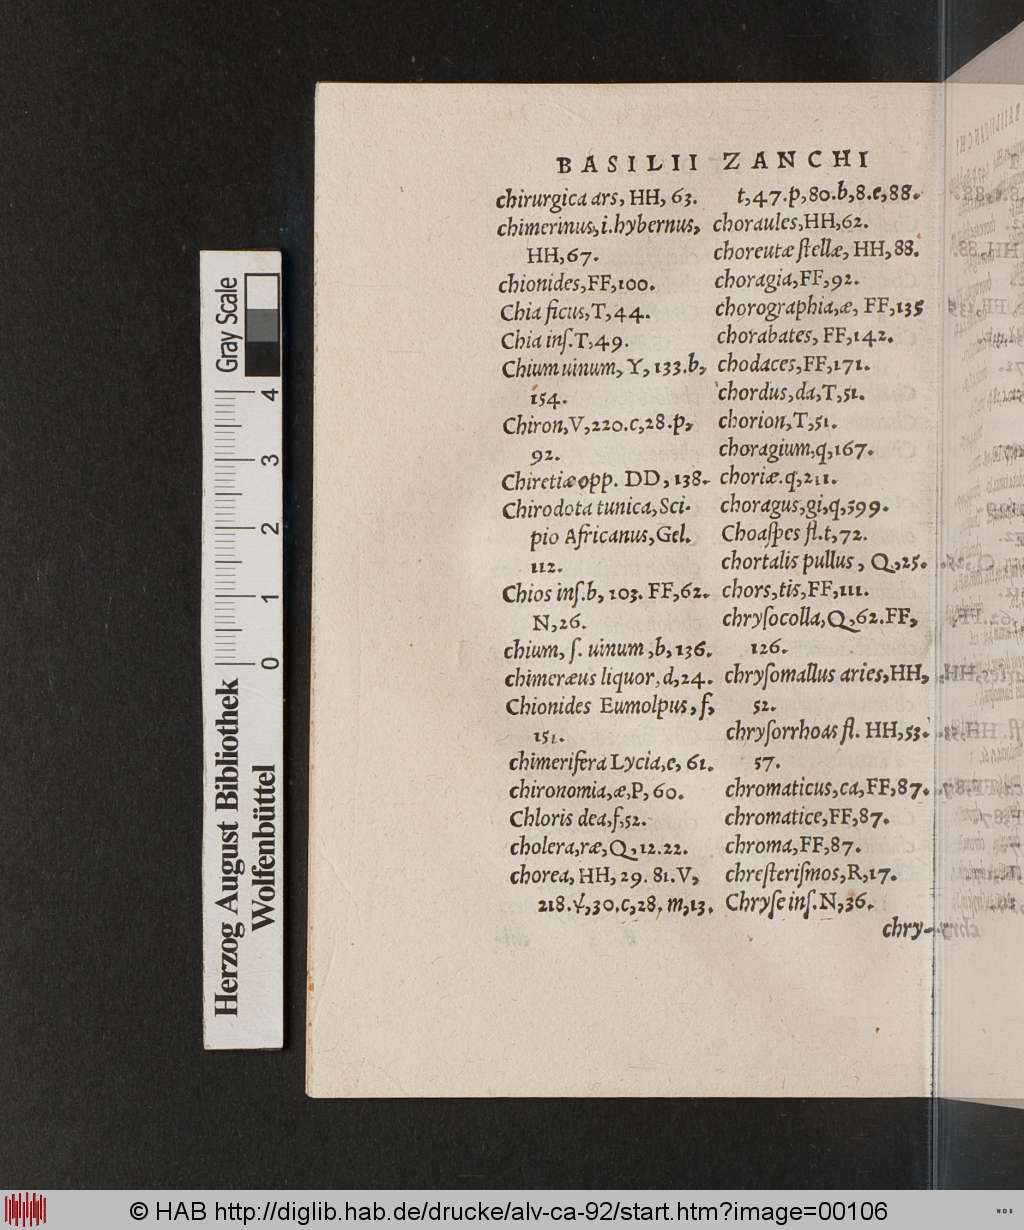 BASILII ZANCHI
chirurgica ars, HH, 63.
chimerinus,i.hybernus,
HH,67.
chionides,FF,100.
Chia ficus,T,44.
Chia inſ.T,49.
Chium uinum, Y, 133.b,
154.
Chiron,V,220.c,28.p,
92.
Chiretiæ opp. DD, 138.
Chirodota tunica, Sci-
pio Africanus, Gel.
112.
Chios inſ.b, 103. FF,62.
N,26.
chium, ſ. uinum ,b,136.
chimeræus liquor, d,24.
Chionides Eumolpus, f,
151.
chimerifera Lycia,e, 61.
chironomia,æ,P, 60.
Chloris dea,f,52.
cholera,ræ,Q,12.22.
chorea, HH, 29. 81.V,
218.Y,30.c,28. m,13.
t,47.p,80.b,8.e,88.
choraules,HH,62.
choreutæ ſtellæ, HH, 88.
choragia,FF,92.
chorographia,æ, FF,135
chorabates, FF,142.
chodaces,FF,171.
chordus,da,T,51.
chorion,T,51.
choragium,q,167.
choriæ.q,211.
choragus,gi,q,599.
Choaſpes fl.t,72.
chortalis pullus, Q,25.
chors,tis,FF,111.
chryſocolla,Q,62.FF,
126.
chryſomallus aries,HH,
52.
chryſorrhoas fl. HH,53.
57.
chromaticus,ca,FF,87.
chromatice,FF,87.
chroma,FF,87.
chreſteriſmos,R,17.
Chryſe inſ.N,36.
chry-
Gray Scale
4
3
2
1
0
Herzog August Bibliothek
Wolfenbüttel
© HAB http://diglib.hab.de/drucke/alv-ca-92/start.htm?image=00106